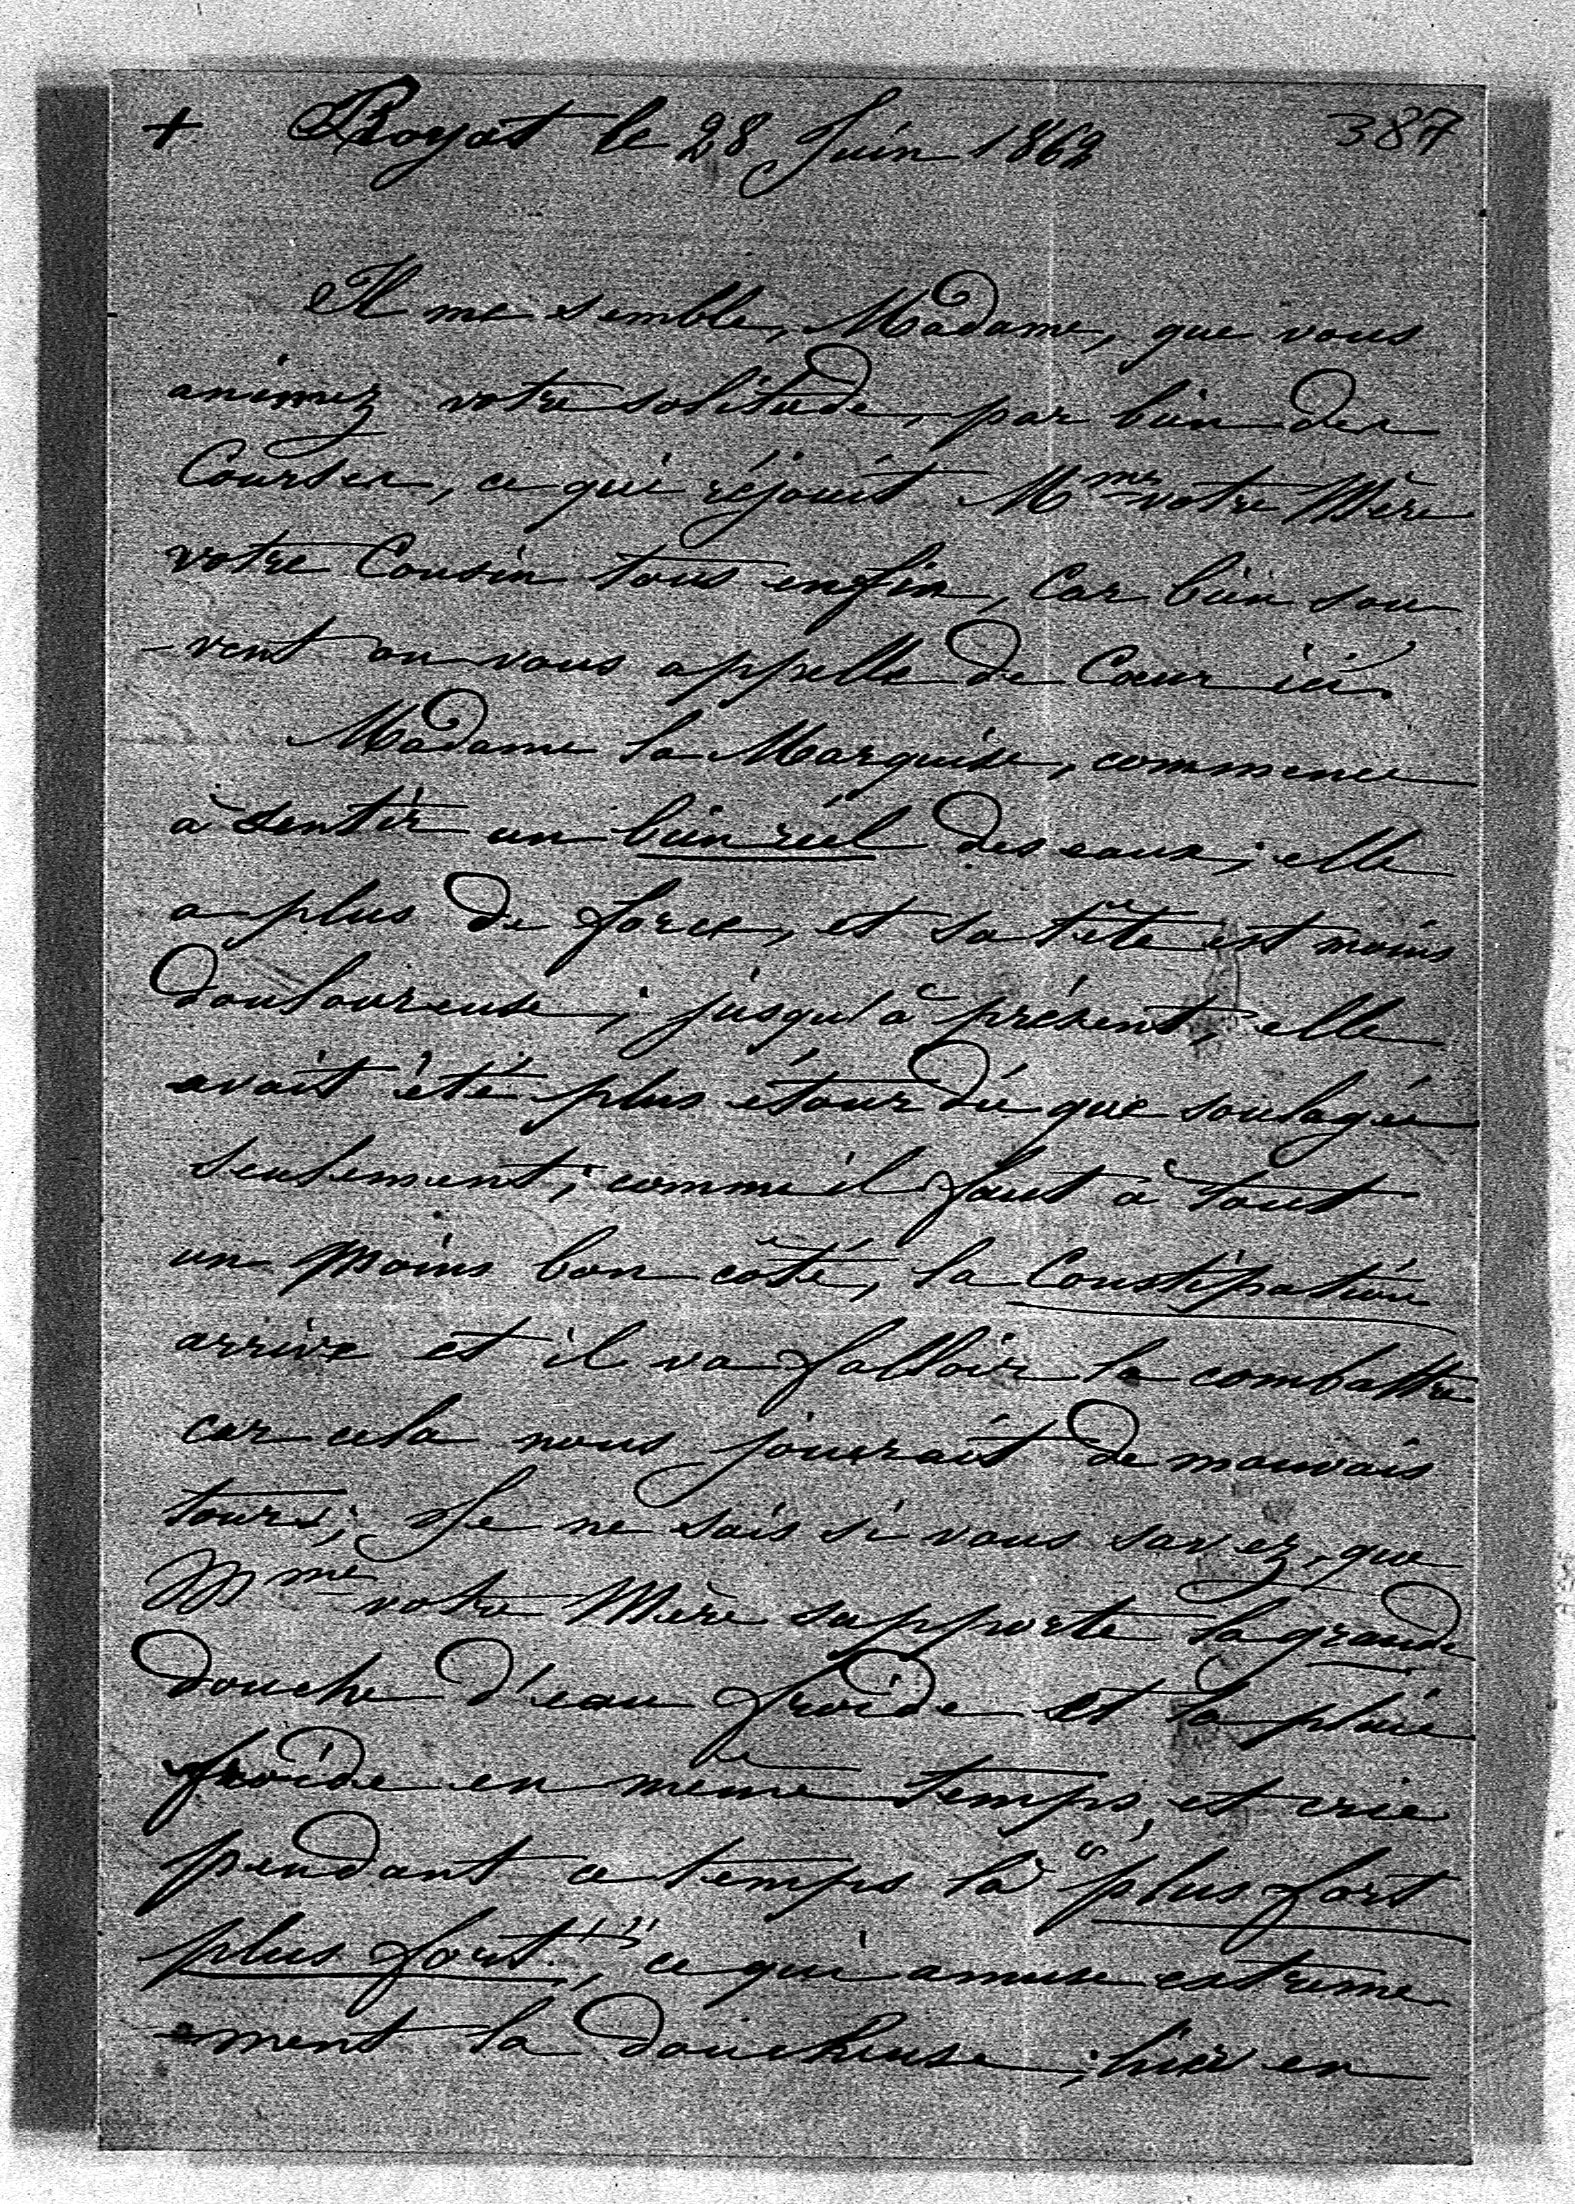 + Royat le 28 Juin 1862 387
Il me semble, Madame, que vous
animez votre solitude, par bien des
Courses, ce qui réjouit Mme votre Mère
votre Cousin tous enfin, Car bien sou
-vent on vous appelle de Cœur ici.
Madame la Marquise, commence
à sentir un bien réel des eaux; elle
a plus de force, et sa tête est moins
douloureuse; jusqu'à présent, elle
avait été plus étourdie que soulagée
seulement; comme il faut à tout
un moins bon côté, la Constipation
arrive et il va falloir la combattre
car cela nous jouerait de mauvais
tours; Je ne sais si vous savez, que
Mme votre Mère supporte la grande
douche d'eau froide et la pluie
froide en même temps, et crie
pendant ce temps là "plus fort
plus fort!!", ce qui amuse extreme
-ment la doucheuse; hier en